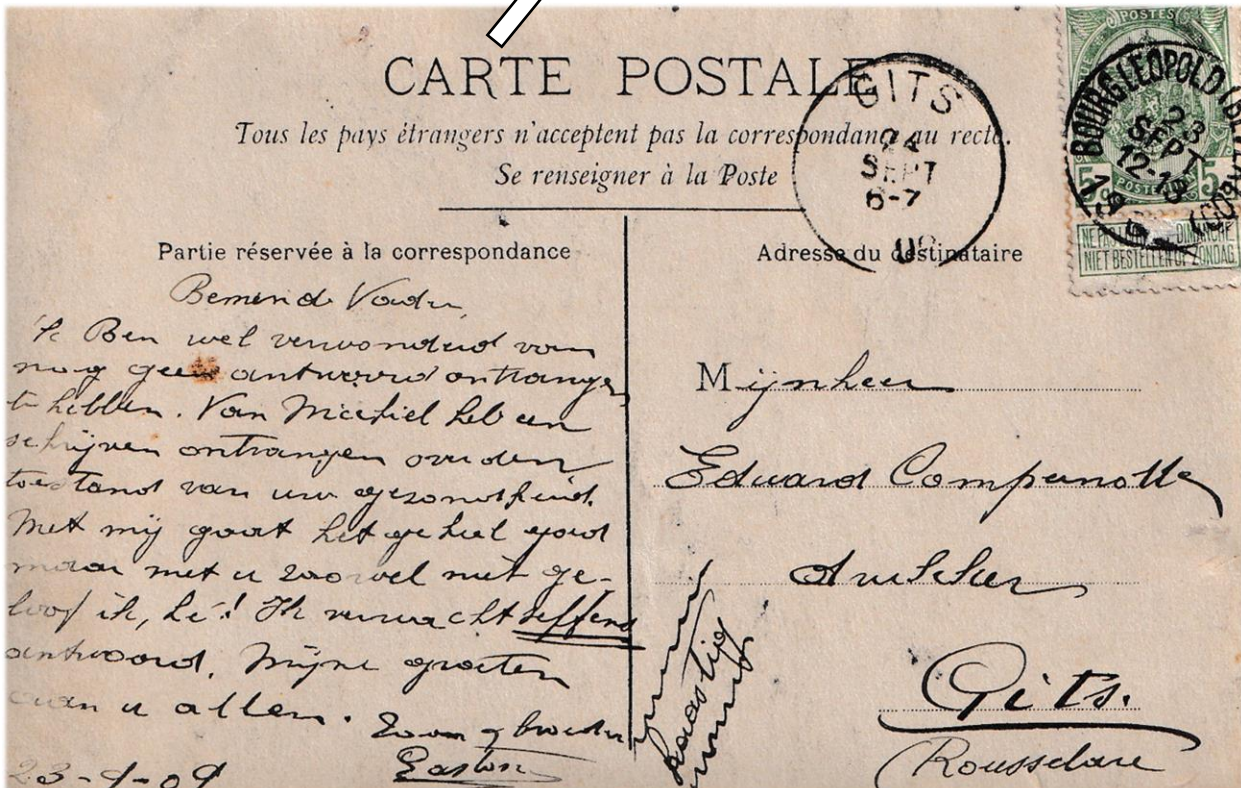 CARTE POSTALE
Tous les pays étrangers n'acceptent pas la correspondance au recto.
Se renseigner à la Poste
GITS
24
SEPT
6-7
09
POSTES
BOURG-LEOPOLD (BEVERLOO)
23
SEPT
12-13
5 POSTERIJEN 5
NE PAS LIVRER LE DIMANCHE
NIET BESTELLEN OP ZONDAG
Partie réservée à la correspondance
Beminde Vader,
'k Ben wel verwonderd van
nog geen antwoord ontvangen
te hebben. Van Michiel heb een
schrijven ontvangen over den
toestand van uw gezondheid.
Met mij gaat het geheel goed
maar met u zoowel niet ge-
loof ik, hé! Ik verwacht seffens
antwoord. Mijne groeten
aan u allen.
Zoon & broeder
Gaston
23-9-09
Adresse du destinataire
Mijnheer
Eduard Compernolle
Gits.
(Rousselare